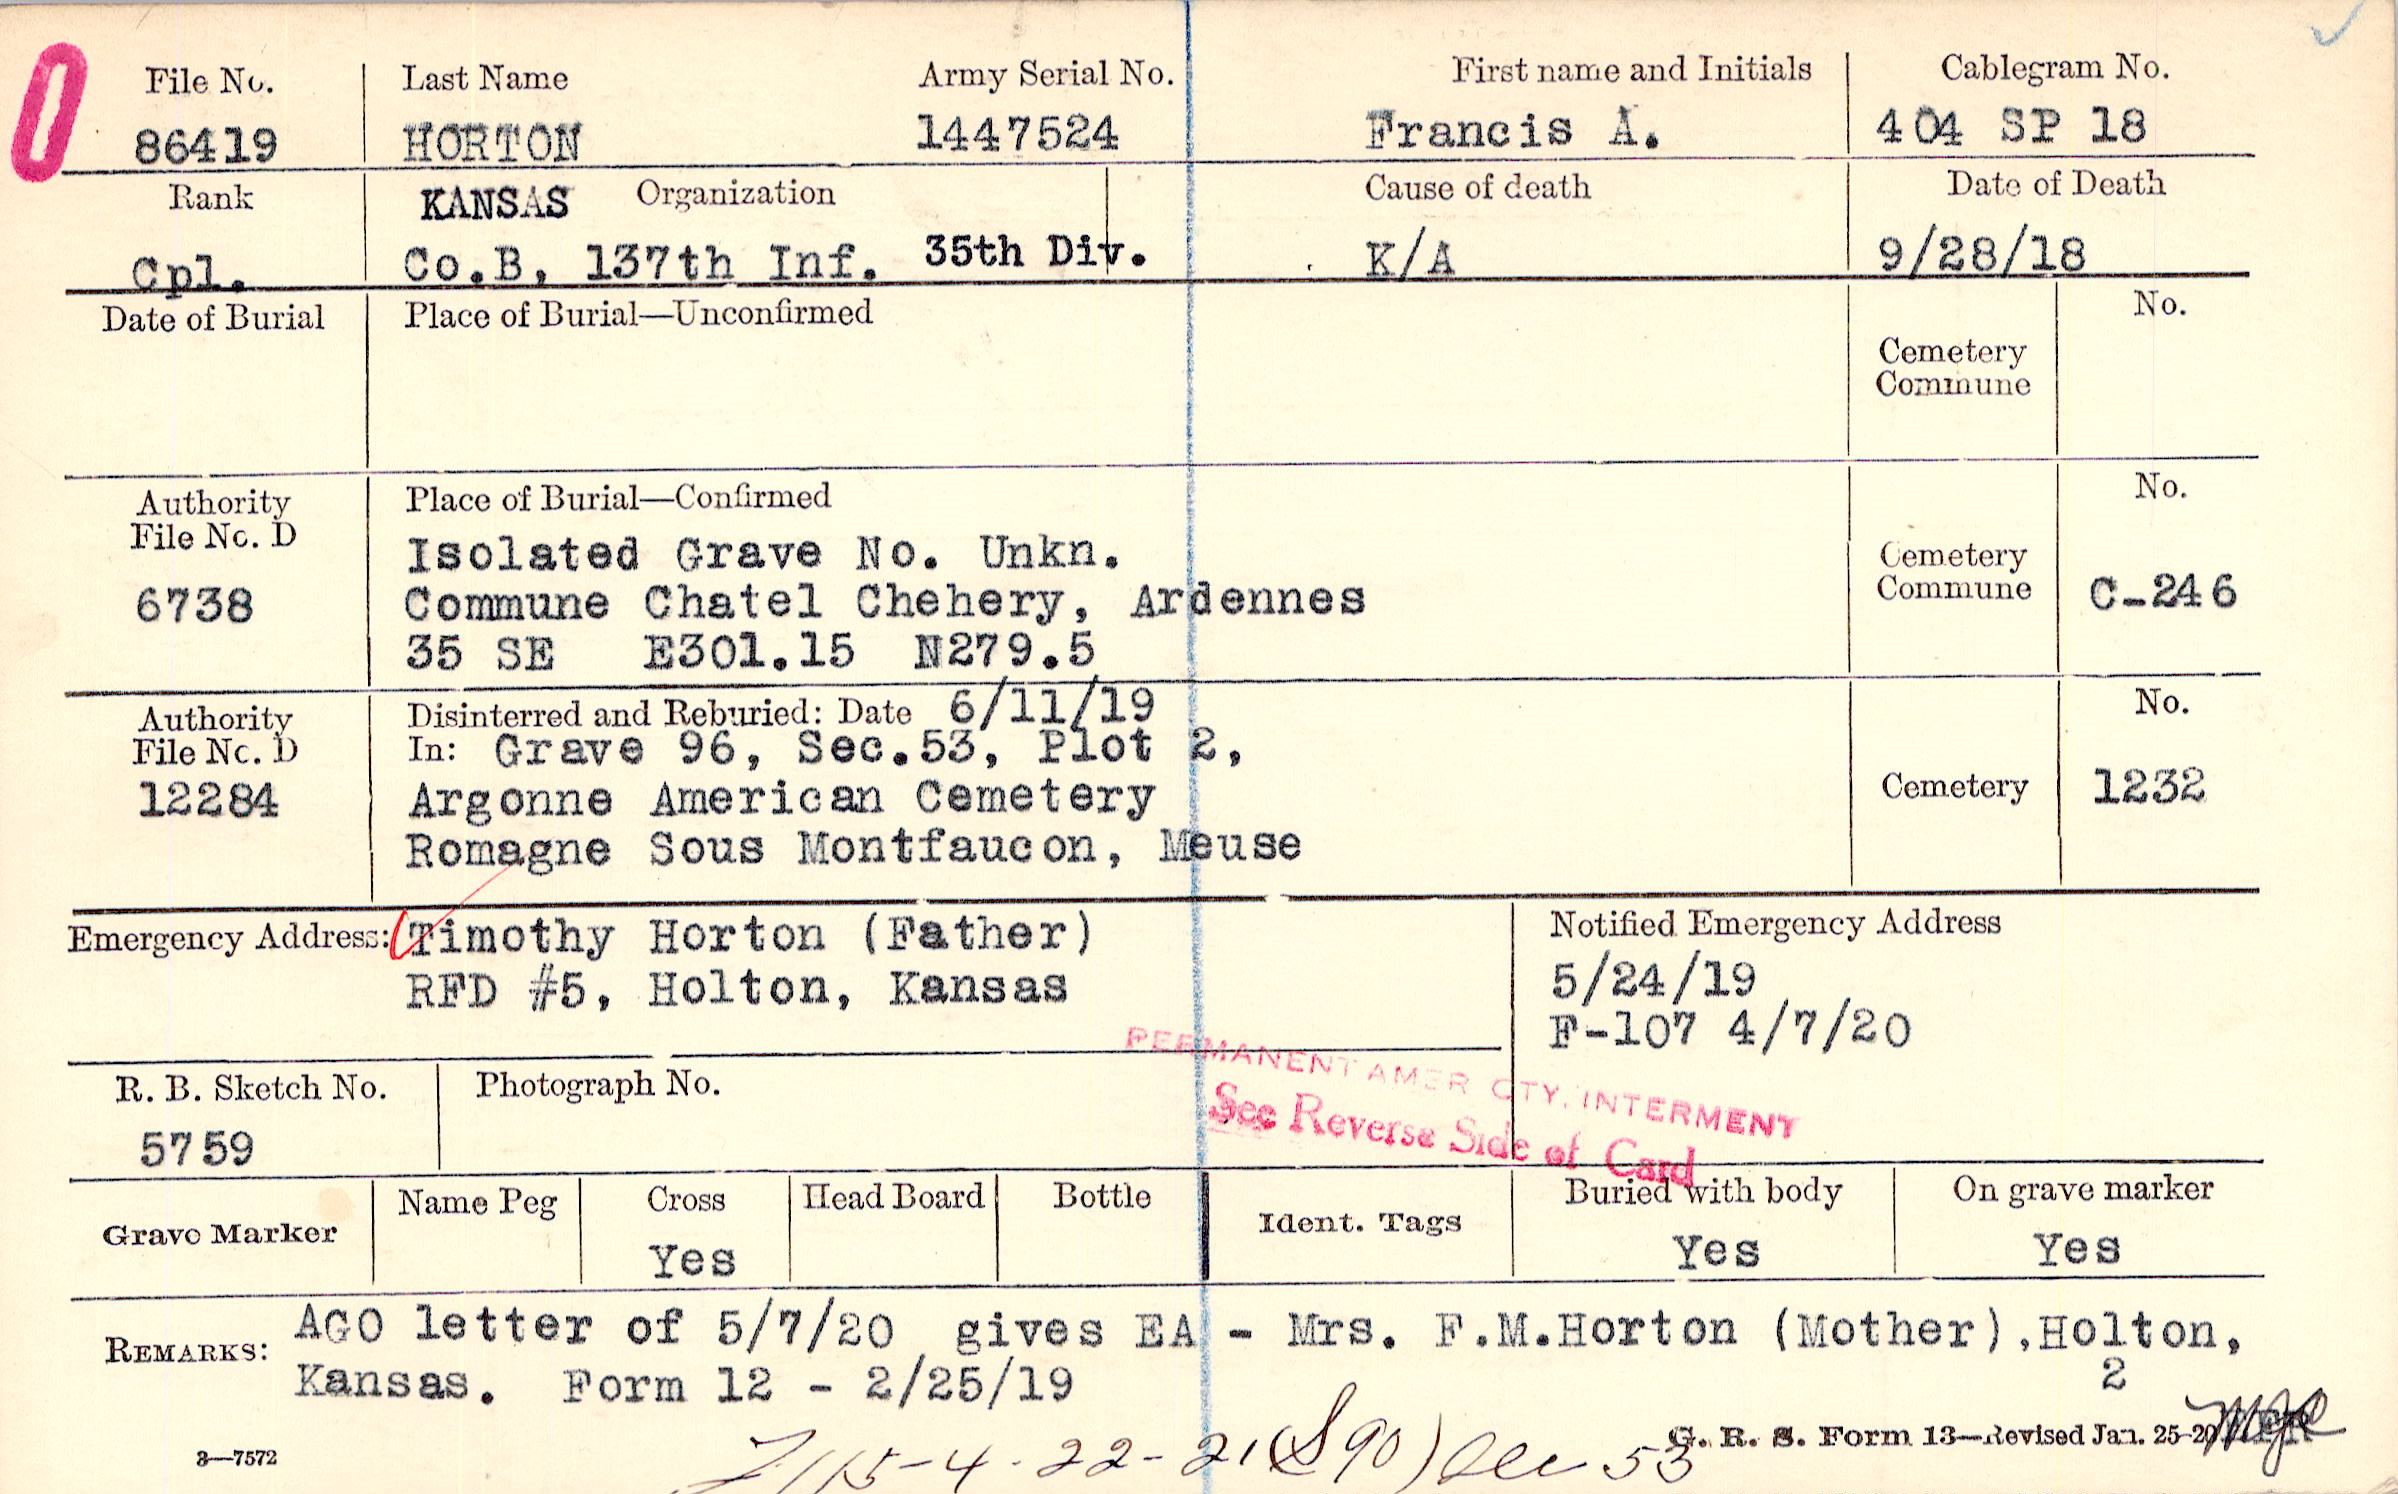 File No. Last Name Army Serial No. First name and Initials Cablegram No.
86419 HORTON 1447524 Francis A. 404 SP 18
Rank KANSAS Organization Cause of death Date of Death
Cpl. Co.B, 137th Inf. 35th Div. K/A 9/28/18
Date of Burial Place of Burial—Unconfirmed No.
Cemetery
Commune
Authority Place of Burial—Confirmed No.
File No. D
Isolated Grave No. Unkn. Cemetery
6738 Commune Chatel Chehery, Ardennes Commune C-246
35 SE E301.15 N279.5
Authority Disinterred and Reburied: Date 6/11/19 No.
File No. D In: Grave 96, Sec.53, Plot 2,
12284 Argonne American Cemetery Cemetery 1232
Romagne Sous Montfaucon, Meuse
Emergency Address: Timothy Horton (Father) Notified Emergency Address
RFD #5, Holton, Kansas 5/24/19
F-107 4/7/20
PERMANENT AMER CTY. INTERMENT
See Reverse Side of Card
R. B. Sketch No. Photograph No.
5759
Grave Marker Name Peg Cross Head Board Bottle Ident. Tags Buried with body On grave marker
Yes Yes Yes
REMARKS: AGO letter of 5/7/20 gives EA - Mrs. F.M.Horton (Mother),Holton,
Kansas. Form 12 - 2/25/19 2
3—7572 G. R. S. Form 13—Revised Jan. 25-20
-4-22-21 (S90) 53